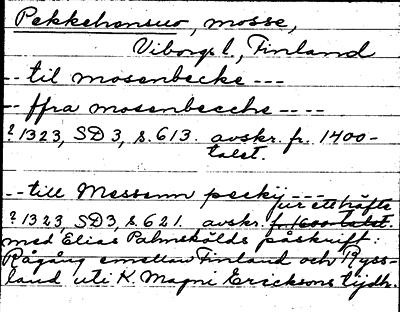 Pekkehensuo, mosse,
Viborgs l., Finland
-- til mosenbecke ---
-- ffra mosenbecche ----
? 1323, SD 3, s. 613. avskr. fr. 1400-
talet.
-- till Messenn pecki ---
ur ett häfte
? 1323, SD 3, s. 621. avskr. fr. 1600-talet.
med Elias Palmskölds påskrift:
Rågång emellan Finland och Ryss-
land uti K. Magni Ericksons tijdh.